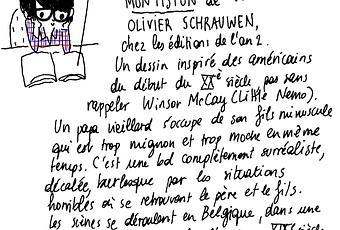 MON FISTON de
OLIVIER SCHRAUWEN,
chez les éditions de l'an 2.
Un dessin inspiré des américains
du début du XXe siècle pas sans
rappeler Winsor McCay (Little Nemo).
Un papa vieillard s'occupe de son fils minuscule
qui est trop mignon et trop moche en même
temps. C'est une bd complètement surréaliste,
décalée, burlesque par les situations
horribles où se retrouvent le père et le fils.
les scènes se déroulent en Belgique, dans une